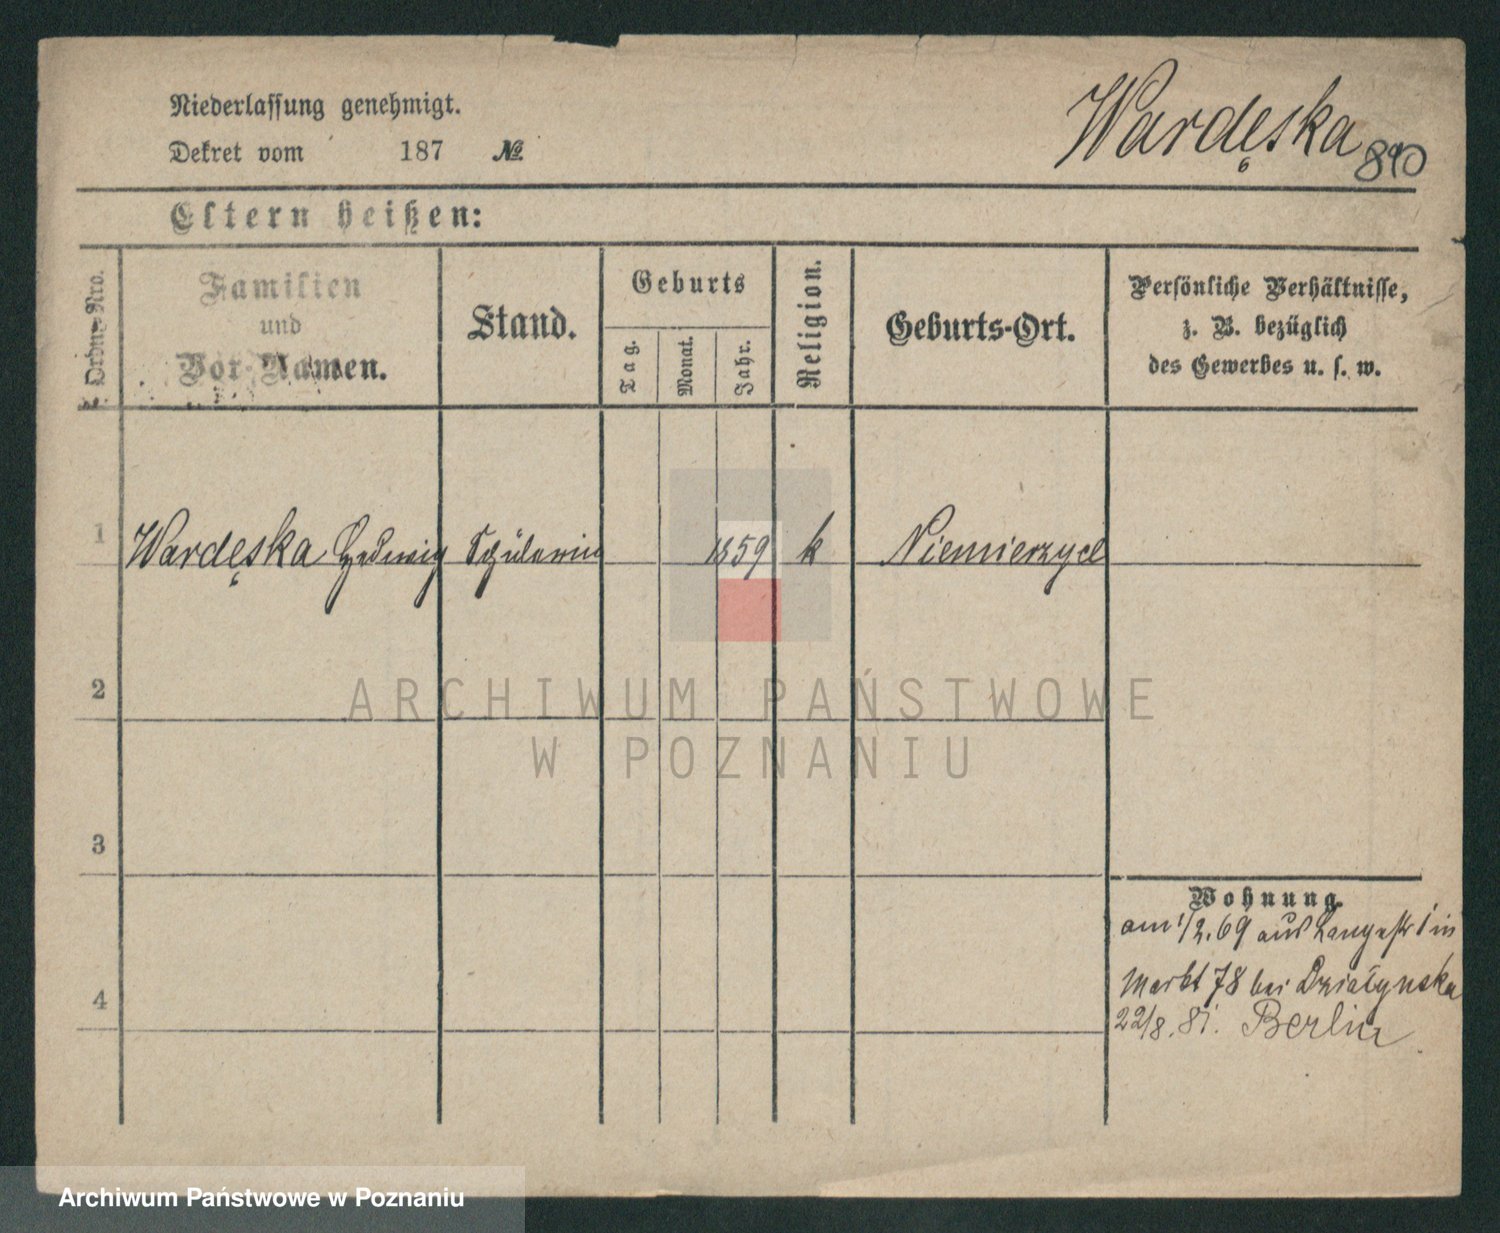 Niederlassung genehmigt.
Dekret vom 187 №
Wardęska 890
Eltern heißen:
Ordnungs-Nro.
Familien
und
Vor-Namen.
Stand.
Geburts
Tag.
Monat.
Jahr.
Religion.
Geburts-Ort.
Persönliche Verhältnisse,
z. B. bezüglich
des Gewerbes u. s. w.
1 Wardęska Hedwig Schülerin 1859 k Niemierzyce
2
3
4
Wohnung.
am 1/2.69 aus Langestr 1 in
Markt 78 bei Działynska
22/8.81. Berlin
ARCHIWUM PAŃSTWOWE
W POZNANIU
Archiwum Państwowe w Poznaniu